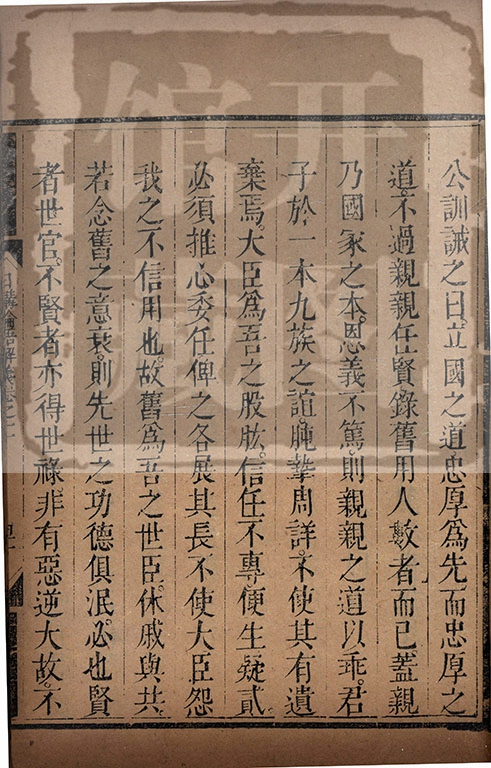 公訓誡之曰。立國之道。忠厚爲先。而忠厚之
道。不過親親任賢錄舊用人數者而已。蓋親
乃國家之本。恩義不篤。則親親之道以乖。君
子於一本九族之誼。肫摯周詳。不使其有遺
棄焉。大臣爲吾之股肱。信任不專。便生疑貳。
必須推心委任。俾之各展其長。不使大臣怨
我之不信用也。故舊爲吾之世臣。休戚與共。
若念舊之意衰。則先世之功德俱泯。必也賢
者世官。不賢者亦得世祿。非有惡逆大故。不
開
館